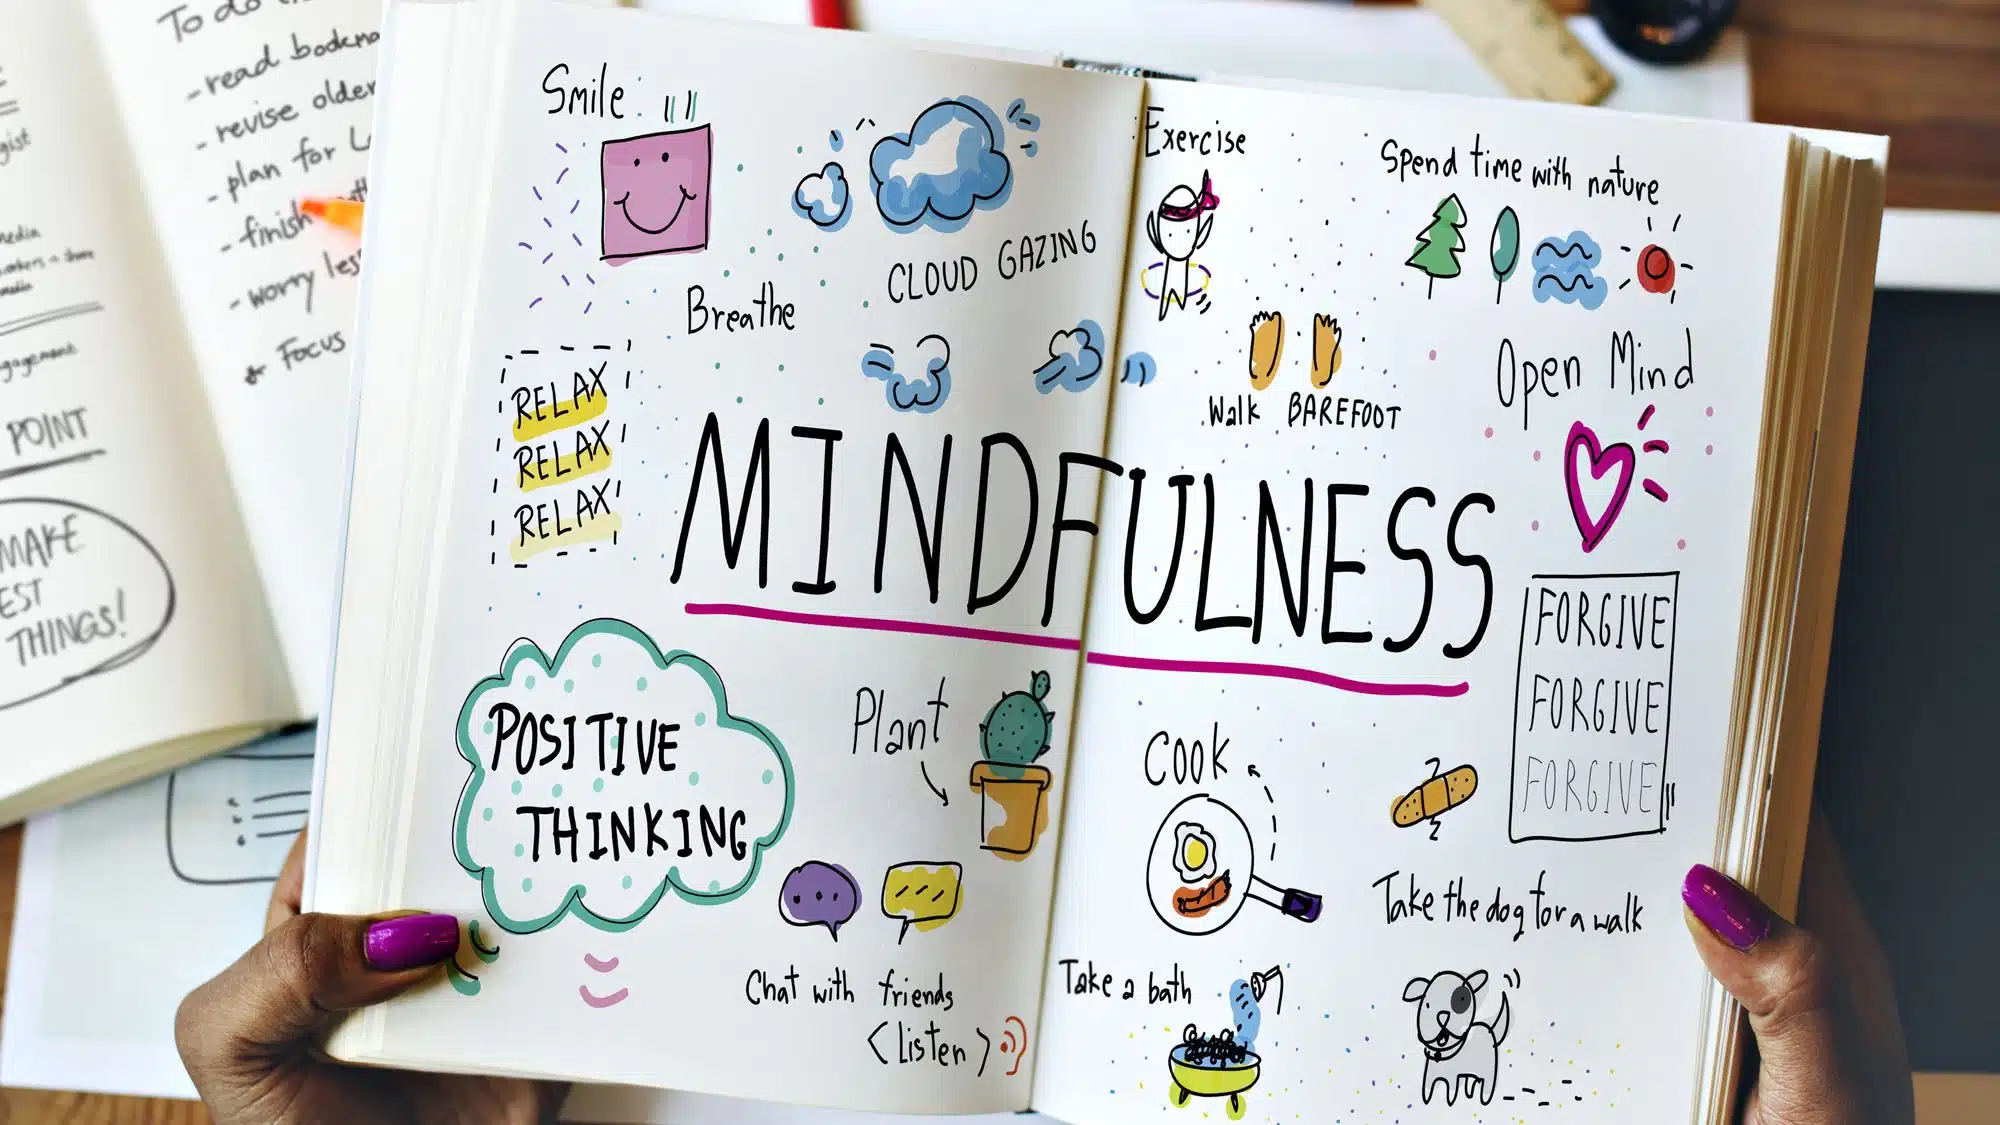 To do
- read
- revise older
- plan for
- finish
- worry less
Focus
gist
media
POINT
MAKE
THINGS!
Smile
Breathe
CLOUD GAZING
RELAX
RELAX
RELAX
MINDFULNESS
POSITIVE
THINKING
Plant
Chat with friends
<Listen>
Exercise
Spend time with nature
Walk BAREFOOT
Open Mind
FORGIVE
FORGIVE
FORGIVE
Cook
Take a bath
Take the dog for a walk